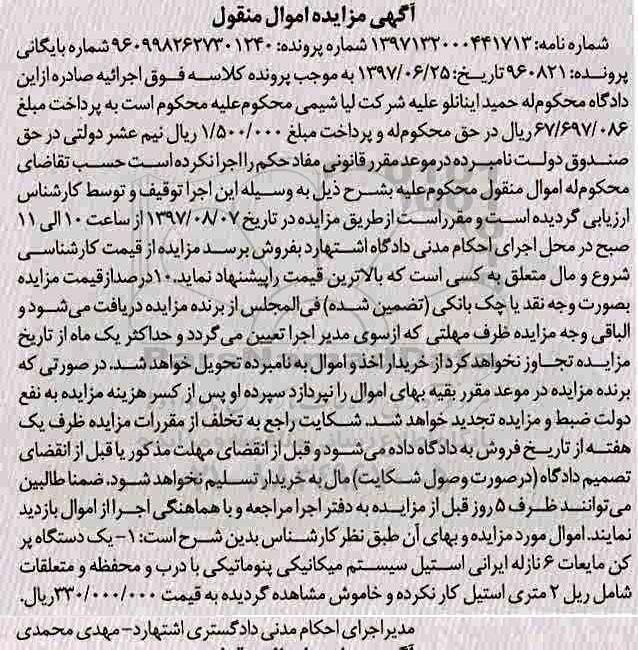 آگهی مزایده اموال منقول
شماره نامه: ۱۳۹۷۱۳۲۰۰۰۴۴۱۷۱۳ شماره پرونده: ۹۶۰۹۹۸۲۶۲۷۳۰۱۲۴۰ شماره بایگانی
پرونده: ۹۶۰۸۲۱ تاریخ: ۱۳۹۷/۰۶/۲۵ به موجب پرونده کلاسه فوق اجرائیه صادره ازاین
دادگاه محکوم‌له حمید اینانلو علیه شرکت لیا شیمی محکوم‌علیه محکوم است به پرداخت مبلغ
۶۷/۶۹۷/۰۸۶ ریال در حق محکوم‌له و پرداخت مبلغ ۱/۵۰۰/۰۰۰ ریال نیم عشر دولتی در حق
صندوق دولت نامبرده درموعد مقرر قانونی مفاد حکم را اجرا نکرده است حسب تقاضای
محکوم‌له اموال منقول محکوم‌علیه بشرح ذیل به وسیله این اجرا توقیف و توسط کارشناس
ارزیابی گردیده است و مقرراست ازطریق مزایده در تاریخ ۱۳۹۷/۰۸/۰۷ از ساعت ۱۰ الی ۱۱
صبح در محل اجرای احکام مدنی دادگاه اشتهارد بفروش برسد مزایده از قیمت کارشناسی
شروع و مال متعلق به کسی است که بالاترین قیمت راپیشنهاد نماید. ۱۰درصدازقیمت مزایده
بصورت وجه نقد یا چک بانکی (تضمین شده) فی‌المجلس از برنده مزایده دریافت می‌شود و
الباقی وجه مزایده ظرف مهلتی که ازسوی مدیر اجرا تعیین می‌گردد و حداکثر یک ماه از تاریخ
مزایده تجاوز نخواهدکرد از خریدار اخذ و اموال به نامبرده تحویل خواهد شد. در صورتی که
برنده مزایده در موعد مقرر بقیه بهای اموال را نپردازد سپرده او پس از کسر هزینه مزایده به نفع
دولت ضبط و مزایده تجدید خواهد شد. شکایت راجع به تخلف از مقررات مزایده ظرف یک
هفته از تاریخ فروش به دادگاه داده می‌شود و قبل از انقضای مهلت مذکور یا قبل از انقضای
تصمیم دادگاه (درصورت وصول شکایت) مال به خریدار تسلیم نخواهد شود. ضمنا طالبین
می‌توانند ظرف ۵ روز قبل از مزایده به دفتر اجرا مراجعه و با هماهنگی اجرا از اموال بازدید
نمایند. اموال مورد مزایده و بهای آن طبق نظر کارشناس بدین شرح است: ۱- یک دستگاه پر
کن مایعات ۶ نازله ایرانی استیل سیستم میکانیکی پنوماتیکی با درب و محفظه و متعلقات
شامل ریل ۲ متری استیل کار نکرده و خاموش مشاهده گردیده به قیمت ۳۳۰/۰۰۰/۰۰۰ریال.
مدیراجرای احکام مدنی دادگستری اشتهارد- مهدی محمدی